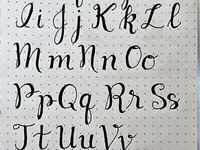 Ii Jj Kk Ll
Mm Nn Oo
Pp Qq Rr Ss
Tt Uu Vv